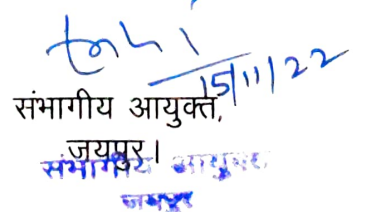 15/11/22
संभागीय आयुक्त,
जयपुर।
संभागीय आयुक्त
जयपुर